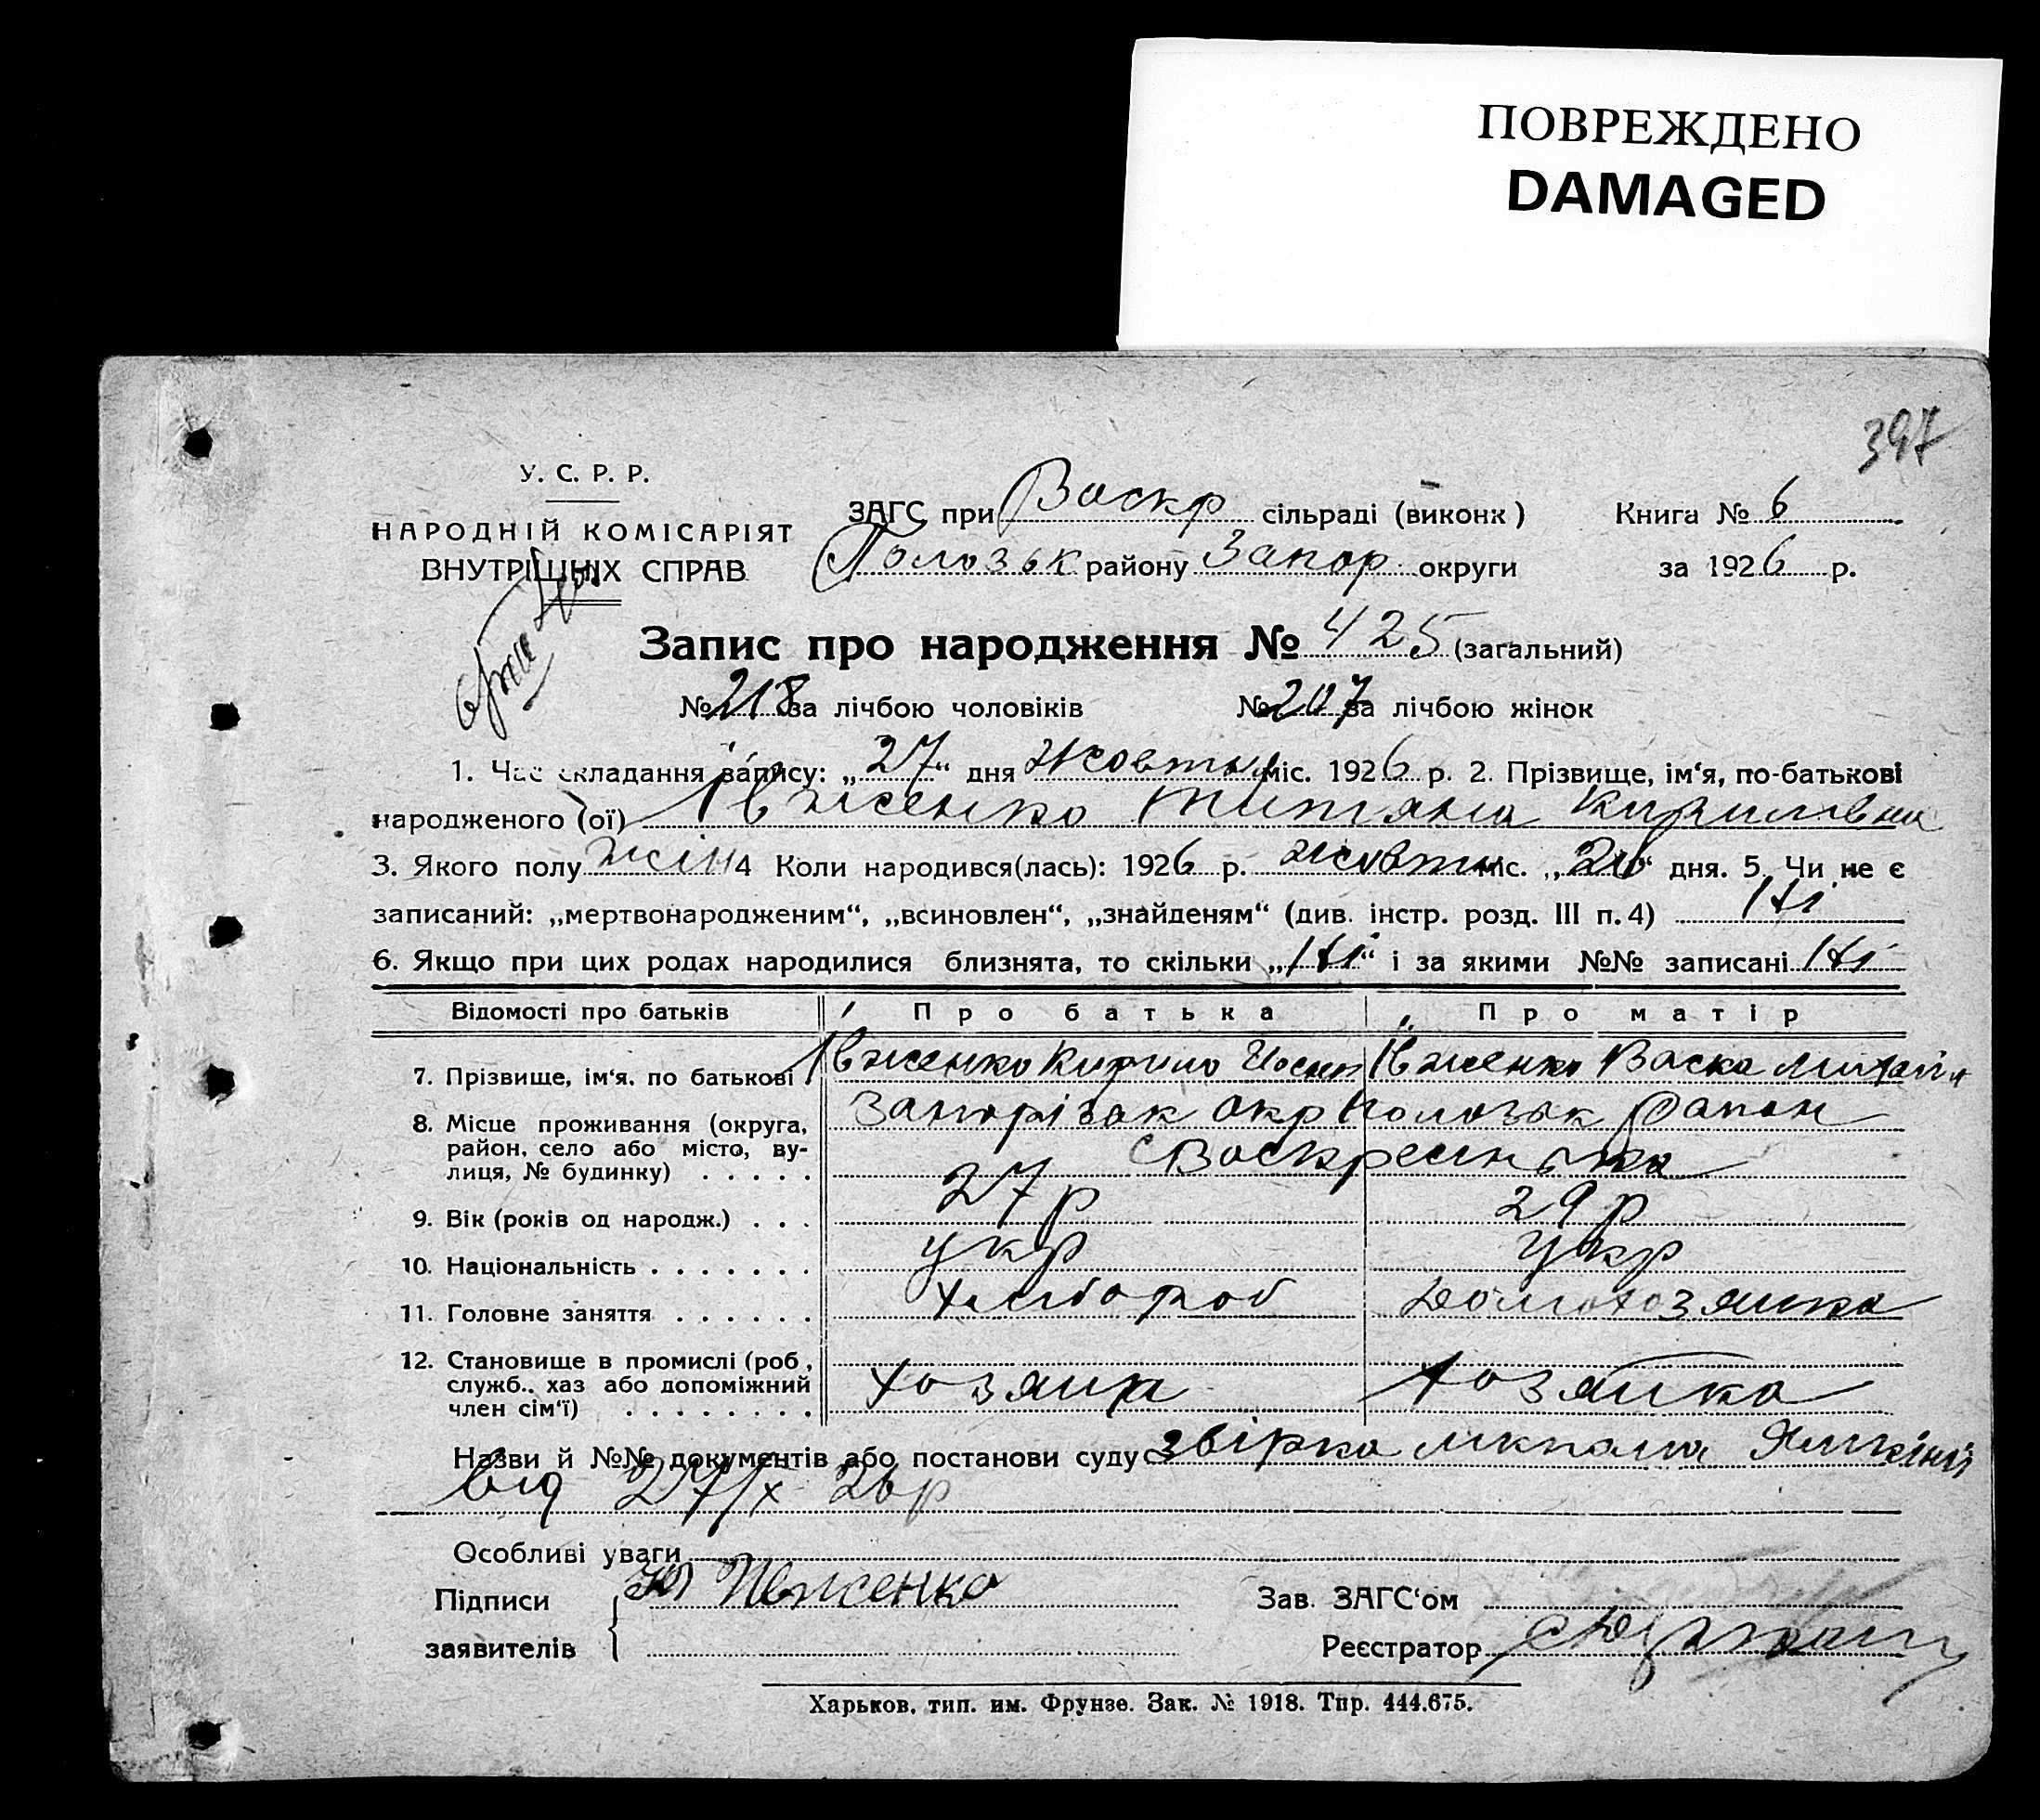 ПОВРЕЖДЕНО
DAMAGED
397
У. С. Р. Р.
НАРОДНІЙ КОМІСАРІЯТ
ВНУТРІШНІХ СПРАВ
ЗАГС при Васкр сільраді (виконк)
Полозьк району Запор. округи
Книга № 6
за 1926 р.
Запис про народження № 425 (загальний)
№ 218 за лічбою чоловіків № 207 за лічбою жінок
1. Час складання запису: „27“ дня Жовтня міс. 1926 р. 2. Прізвище, ім‘я, по-батькові
народженого (ої) Івженко Титяна Кирилівна
3. Якого полу жін 4 Коли народився(лась): 1926 р. жовтн міс. „26“ дня. 5. Чи не є
записаний: „мертвонародженим“, „всиновлен“, „знайденям“ (див. інстр. розд. III п. 4) Ні
6. Якщо при цих родах народилися близнята, то скільки „Ні“ і за якими №№ записані Ні
Відомості про батьків Про батька Про матір
7. Прізвище, ім‘я. по батькові Івженко Кирило Йосип Івженко Васка Михайл
8. Місце проживання (округа, район, село або місто, ву-
лиця, № будинку) Запорізьк окр Полозьк район
с Васкресинька
9. Вік (років од народж.) 27 р 29 р
10. Національність укр укр
11. Головне заняття хлібороб домохозяйка
12. Становище в промислі (роб, служб., хаз або допоміжний
член сім‘ї) хозяин хозяйка
Назви й №№ документів або постанови суду звірка
від 27/X 26 р
Особливі уваги
Підписи
заявителів
Ивженко
Зав. ЗАГС‘ом
Реєстратор
Харьков, тип. им. Фрунзе. Зак. № 1918. Тир. 444.675.